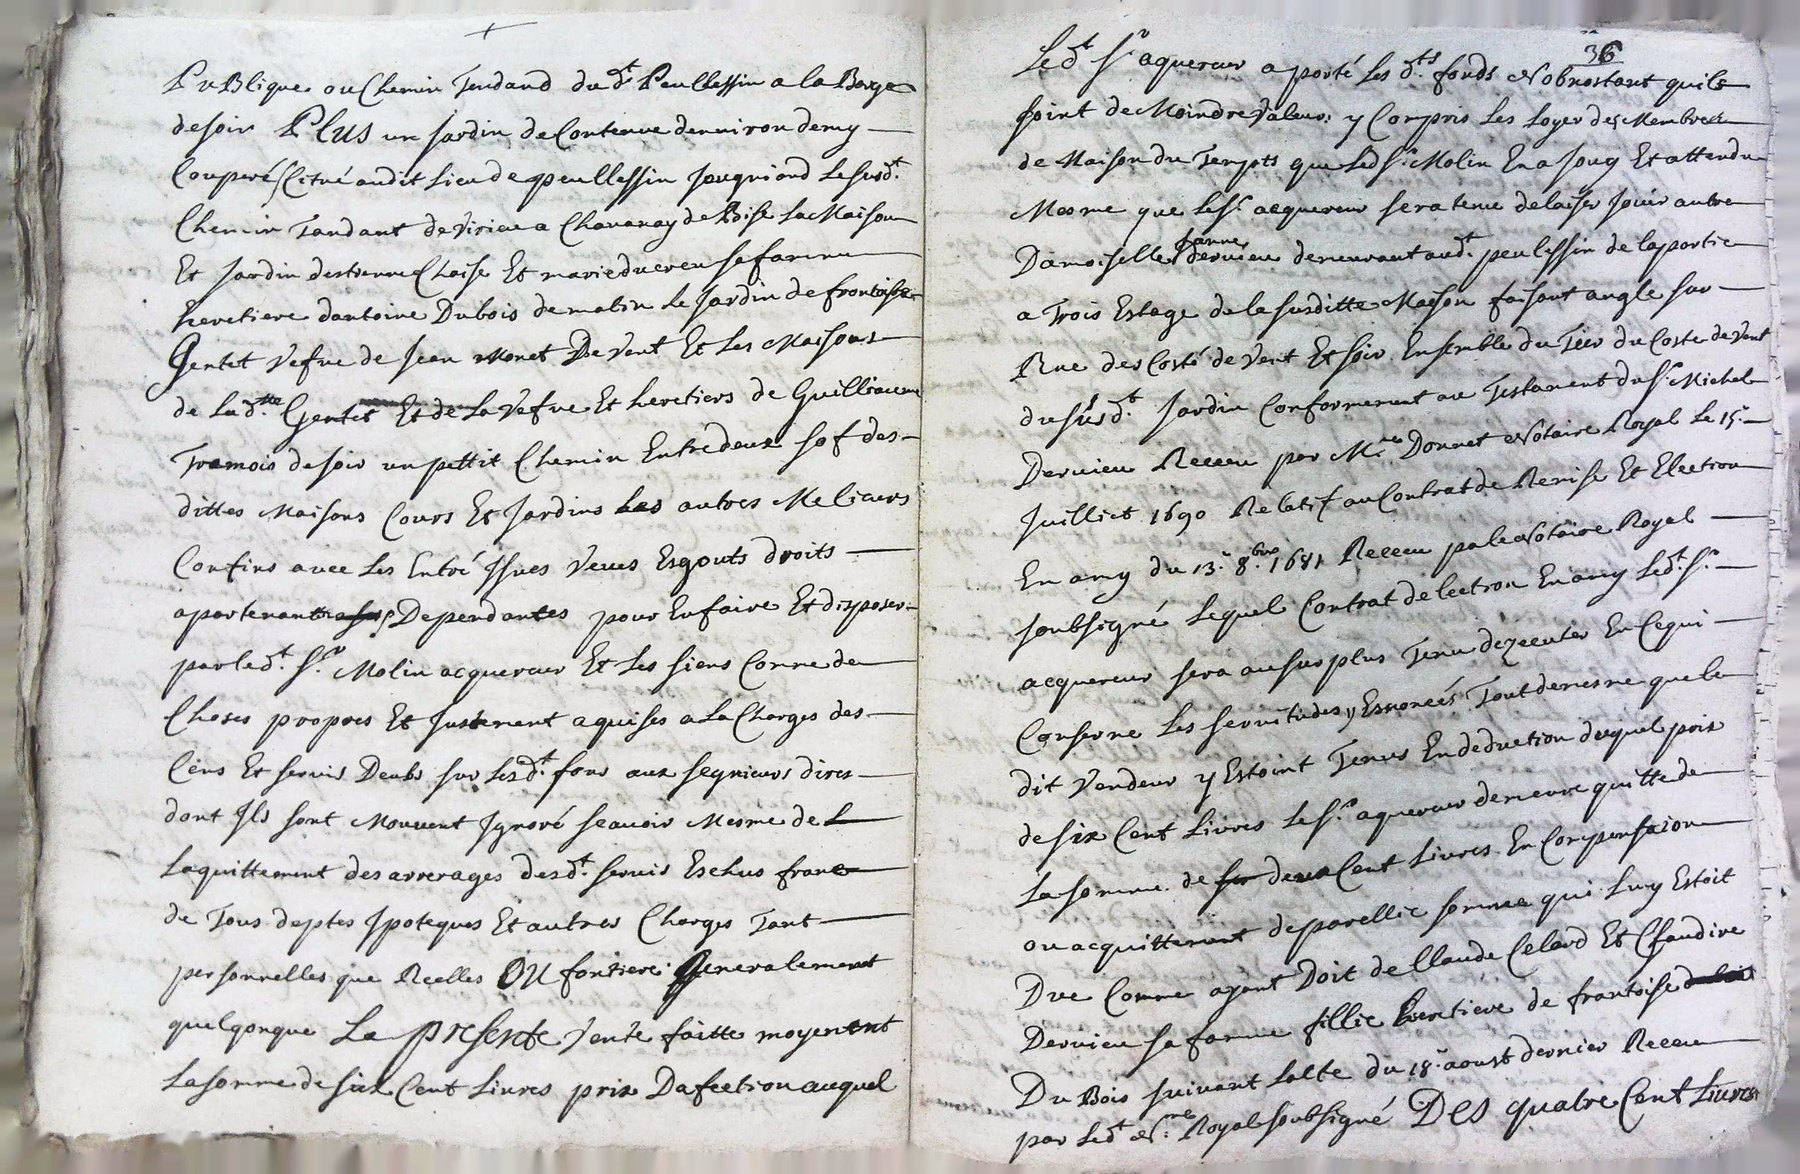 PuBlique ou Chemin Tendand dud.t Peullessin a la Barge
de soir PLUS un Jardin de Contenue denviron demy
Couperé Scitué audit Lieu de peullessin Jougniand le susd.t
Chemin Tandant de Virieu a Chavanay de Bise La Maison
Et Jardin destienne Chaise Et marie duereu sa famme
heretiere dantoine Dubois de matin Le Jardin de francoise
Gentet Vefve de Jean Monet De Vent Et Les Maisons
de lad.tte Gentet Et de La Vefve Et heretiers de Guilliaume
Tramois de soir un pettit Chemin Entredeux sof des
dittes Maisons Cours Et Jardins Les autres Melieurs
Confins avec Les Entré Issues Veues Esgouts droits
apartenant Dependantes pour En faire Et disposer
par led.t S.r Molin acquereur Et Les siens Comme de
Choses propres Et Justement aquises a La Charges des
Cens Et servis Deubs sur Lesd.t fons aux segnieurs dires
dont Ils sont Mouvent Ignoré scavoir Mesme de L
Laquittement des arrerages desd.t servis Eschus franc
de Tous deptes Ipoteques Et autres Charges Tant
personnelles que Reelles OU fontiere Generalement
quelqonque La presente Vente faitte moyenent
La somme de six Cent Livres prix Dafection auquel
36
Led.t S.r aquereur a porté Les d.ts fonds Nobnostant quils
soint de Moindre Valeur y Compris Les Loyer des Membres
de Maison du Temps que Led S.r Molin En a Jouy Et attendu
Mesme que Le S.r acquereur sera tenu de laiser Jouir autre
Damoiselle Janne Dervieu demeurant aud.t peulessin de la portie
a Trois Estage de la susditte Maison faisant angle sur
Rue des Costé de Vent Et soir Ensemble du Tier du Coste de Vent
du susd.t Jardin Conformement au Testament du S.r Michel
Dervieu Receu par M.re Donnet Notaire Royal Le 15.e
Juilliet 1690 Relatif au Contrat de Remise Et Election
En amy du 13.e 8.bre 1681 Receu par le Notaire Royal
soubsigné Lequel Contrat delection En amy Led.t S.r
acquereur sera au surplus Tenu dezecuter En Ce qui
Conserne Les servitudes y Esnoncées Tout de mesme que le
dit Vendeur y Estoint Tenus En deduction duquel prix
de six Cent Livres Le S.r aquereur demeure quitte de
La somme de deux Cent Livres En Compensaion
ou acquittement de parellie somme qui Luy Estoit
Due Comme ayant Doit de Claude Celard Et Claudine
Dervieu sa famme fillie heretiere de francoise
Du Bois suivant Lacte du 18.e aoust dernier Receu
par Led.t N.re Royal soubsigné DES quatre Cent Livres